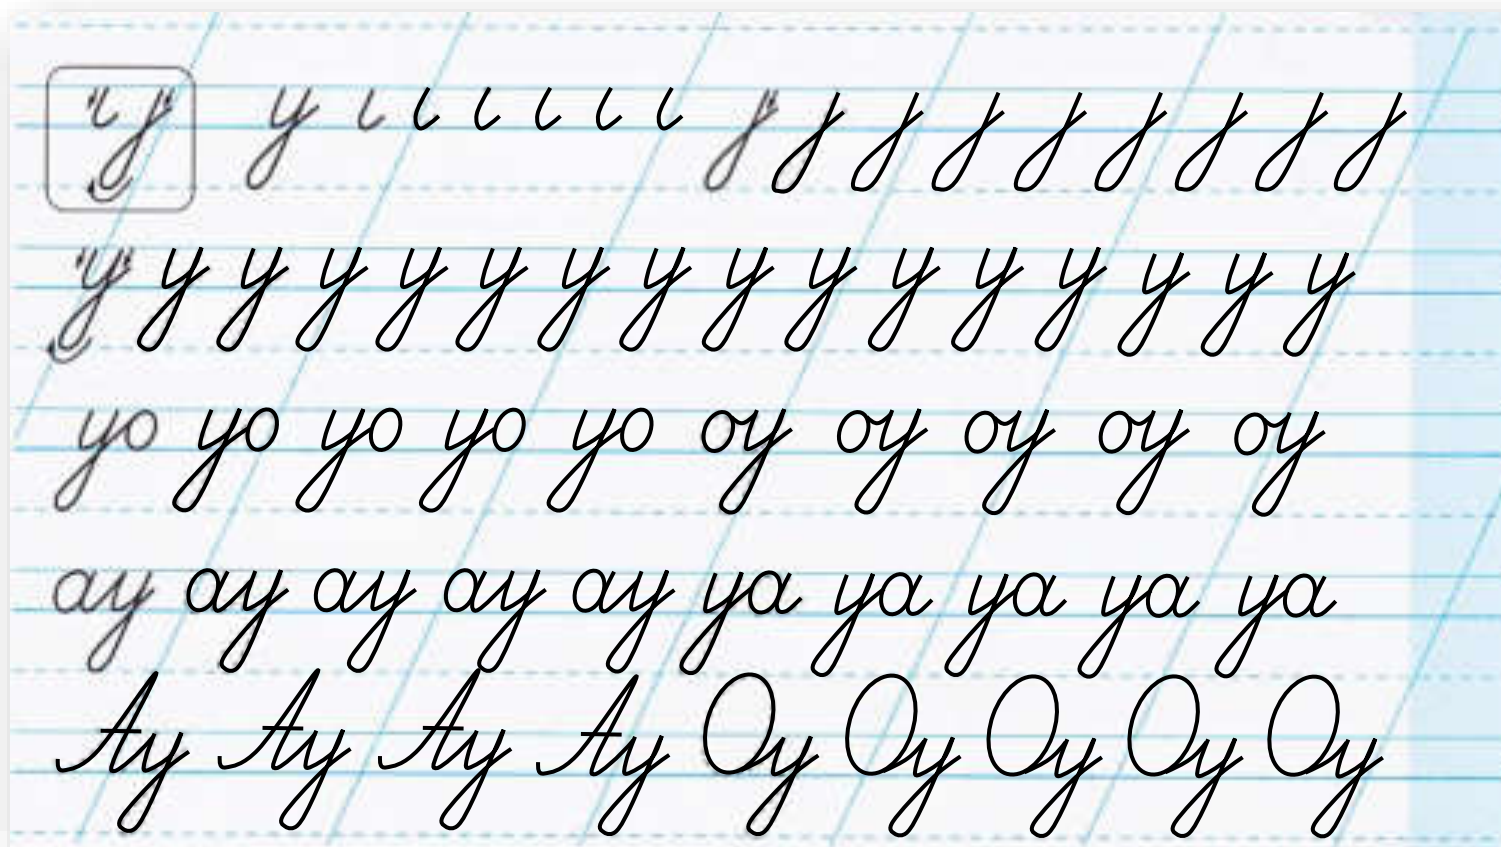 у у
у у у у у у у у у у у у у у у у
уо уо уо уо уо оу оу оу оу оу
ау ау ау ау ау уа уа уа уа уа
Ау Ау Ау Ау Оу Оу Оу Оу Оу